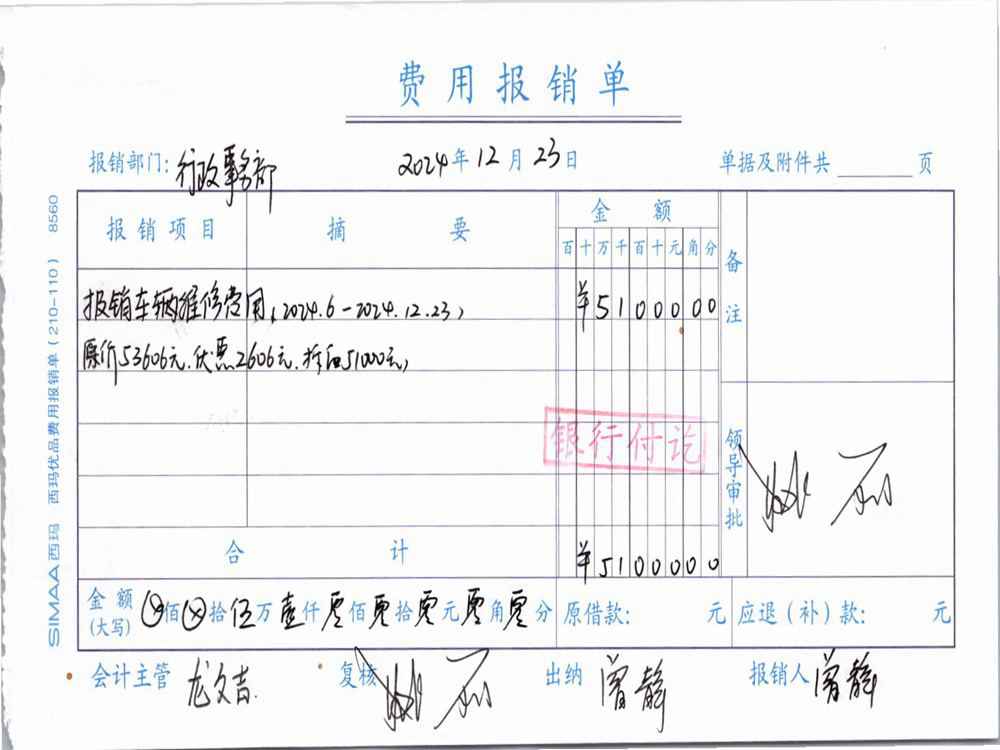 费用报销单
报销部门: 行政事务部 2024年12月23日 单据及附件共 页
报销项目 摘要 金额 备注
百十万千百十元角分
报销车辆维修费用(2024.6-2024.12.23),
¥5100000
原价53606元.优惠2606元.折后51000元,
银行付讫
领导审批
合计 ¥5100000
金额(大写) ⊗佰⊗拾伍万壹仟零佰零拾零元零角零分 原借款: 元 应退(补)款: 元
会计主管 龙文吉 复核 出纳 曾静 报销人 曾静
SIMAA西玛 西玛优品费用报销单(210-110) 8560